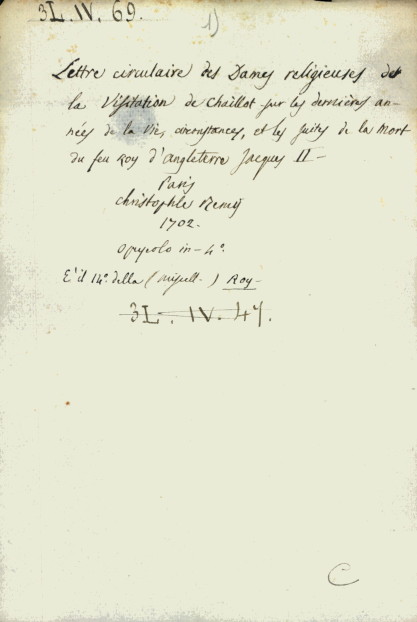 3L.IV.69.
1)
Lettre circulaire des Dames religieuses de
la Visitation de Chaillot sur les dernières an-
nées de la Vie, circonstances, et les suites de la Mort
du feu Roy d'Angleterre Jacques II -
Paris
Christophle Remy
1702.
opuscolo in-4°.
E' il 14°. della (Miscell.) Roy-
3L.IV.47.
C